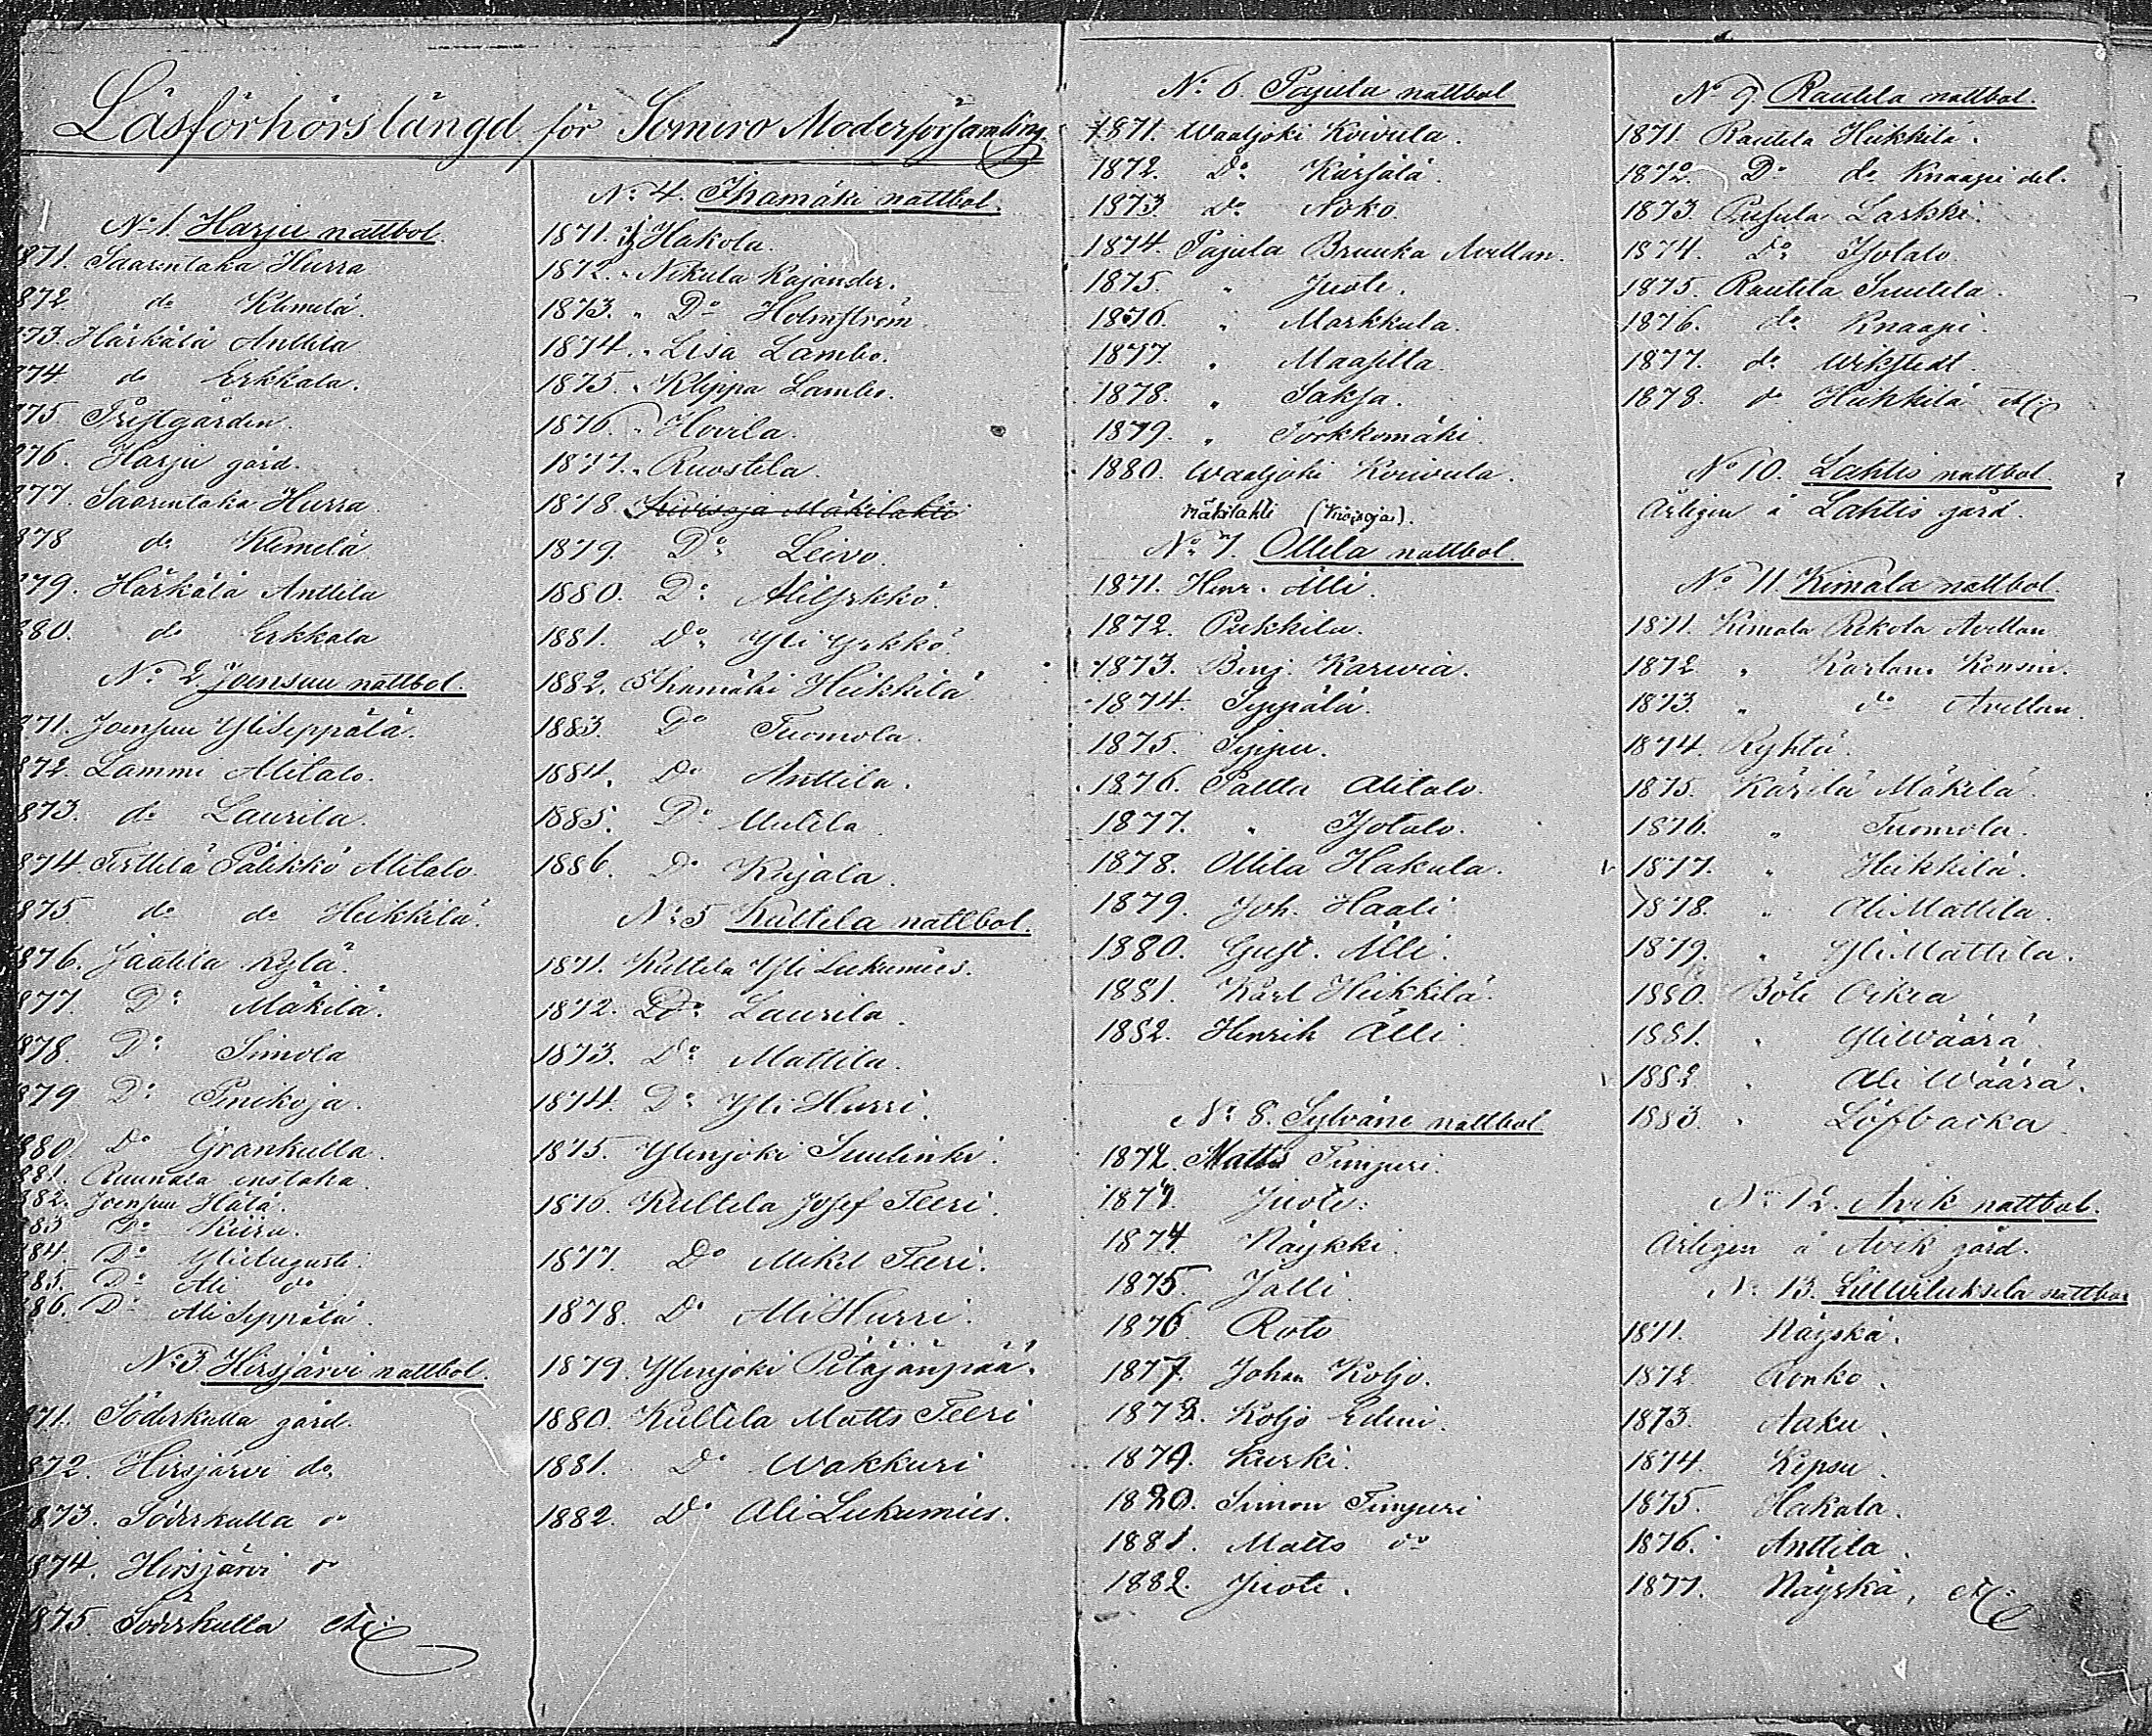 Läsförhörslängd för Somero Moderförsamling.
No 1. Harju nattbol.
1871. Saarentaka Hurra
1872 do Klemelä.
1873. Härkälä Anttila
1874 do Erkkala.
1875. Prestgården.
1876. Harju gård.
1877. Saarentaka Hurra
1878 do Klemelä
1879. Härkälä Anttila
1880. do Erkkala
No 2 Joensuu nattbol.
1871. Joensuu Yliseppälä.
1872. Lammi Alitalo.
1873. do Laurila.
1874. Terttilä Pälikkö Alitalo.
1875 do do Heikkilä.
1876. Jaatila Kylä.
1877. Do Mäkilä.
1878. Do Simola
1879 Do Pinikoja.
1880. Do Grankulla.
1881. Ruunala enstaka.
1882. Joensuu Hätä.
1883 Do Kiiru.
1884. Do Yliaugusti.
1885. Do Ali do
1886. Do Ali Seppälä.
No 3 Hirsjärvi nattbol.
1871. Söderkulla gård.
1872. Hirsjärvi do.
1873. Söderkulla do
1874. Hirsjärvi do
1875. Söderkulla etc:
No 4. Ihamäki nattbol.
1871. Hakola.
1872. " Nikula Kajander.
1873. " Do Holmström
1874. " Lisa Lambo.
1875. " Klippa Lambo.
1876. " Hovila.
1877. " Ruostela.
1878. Kivisoja Mäkilahti
1879. Do Leivo.
1880. Do Ali Yrkkö.
1881. Do Yli Yrkkö.
1882. Ihamäki Heikkilä
1883. Do Tuomola.
1884. Do Anttila.
1885. Do Uutela.
1886. Do Kujala.
No 5 Kultela nattbol.
1871. Kultela Yli Lukumies.
1872. Do Laurila.
1873. Do Mattila.
1874. Do Yli Hurri.
1875. Ylenjoki Suulinki.
1876. Kultela Josef Teeri.
1877. Do Mikel Teeri.
1878. Do Ali Hurri.
1879. Ylenjoki Pitäjänpää.
1880. Kultela Matts Teeri
1881. Do Wakkuri
1882. Do Ali Lukumies.
No 6. Pajula nattbol
1871. Waaljoki Koivula.
1872. Do Kärjälä.
1873. Do Noko
1874. Pajula Bruuka Avellan.
1875. " Juote.
1876. " Markkula.
1877. " Maasilta.
1878. " Saksa.
1879. " Torkkomäki.
1880. Waaljoki Koivula.
Mäkilahti (Kivisoja).
No 7. Ollila nattbol.
1871. Henr. Älli.
1872. Pukkila.
1873. Benj. Karvia.
1874. Seppälä.
1875. Seppu.
1876. Paltta Alitalo.
1877. " Isotalo.
1878. Ollila Hakula.
1879. Joh. Haali
1880. Gust. Älli.
1881. Karl Heikkilä.
1882. Henrik Älli.
No 8. Sylväne nattbol
1872. Matts Timperi.
1873 Juote.
1874 Näykki.
1875 Jalli.
1876 Roto
1877. Johan Koljo.
1878. Koljo Edvin.
1879. Kurki.
1880. Simon Timperi
1881. Matts do
1882. Juote.
No 9. Rautela nattbol.
1871. Rautela Heikkilä.
1872. Do do Knaapi del.
1873. Pusula Larkki.
1874. Do Isotalo.
1875. Rautela Suutela.
1876. do Knaapi.
1877. do Wikstedt
1878. do Heikkilä etc
No 10. Lahtis nattbol.
Årligen å Lahtis gård.
No 11. Kimala nattbol.
1871. Kimala Rekola Avellan
1872 " Karlano Konsin.
1873. " do Avellan.
1874. Ryhtä.
1875. Kärilä Mäkilä.
1876. " Tuomola.
1877. " Heikkilä.
1878. " Ali Mattila.
1879. " Yli Mattila.
1880. Böle Orkia
1881. " Yli Wäärä
1882 " Ali Wäärä.
1883. " Löfbacka
No 12. Åvik nattbol.
Årligen å Åvik gård.
No 13. Lilltviluksela nattbol
1871. Näyskä.
1872 Ronko.
1873. Aaku.
1874. Kepsu.
1875. Hakala.
1876. Anttila.
1877. Näyskä, etc: